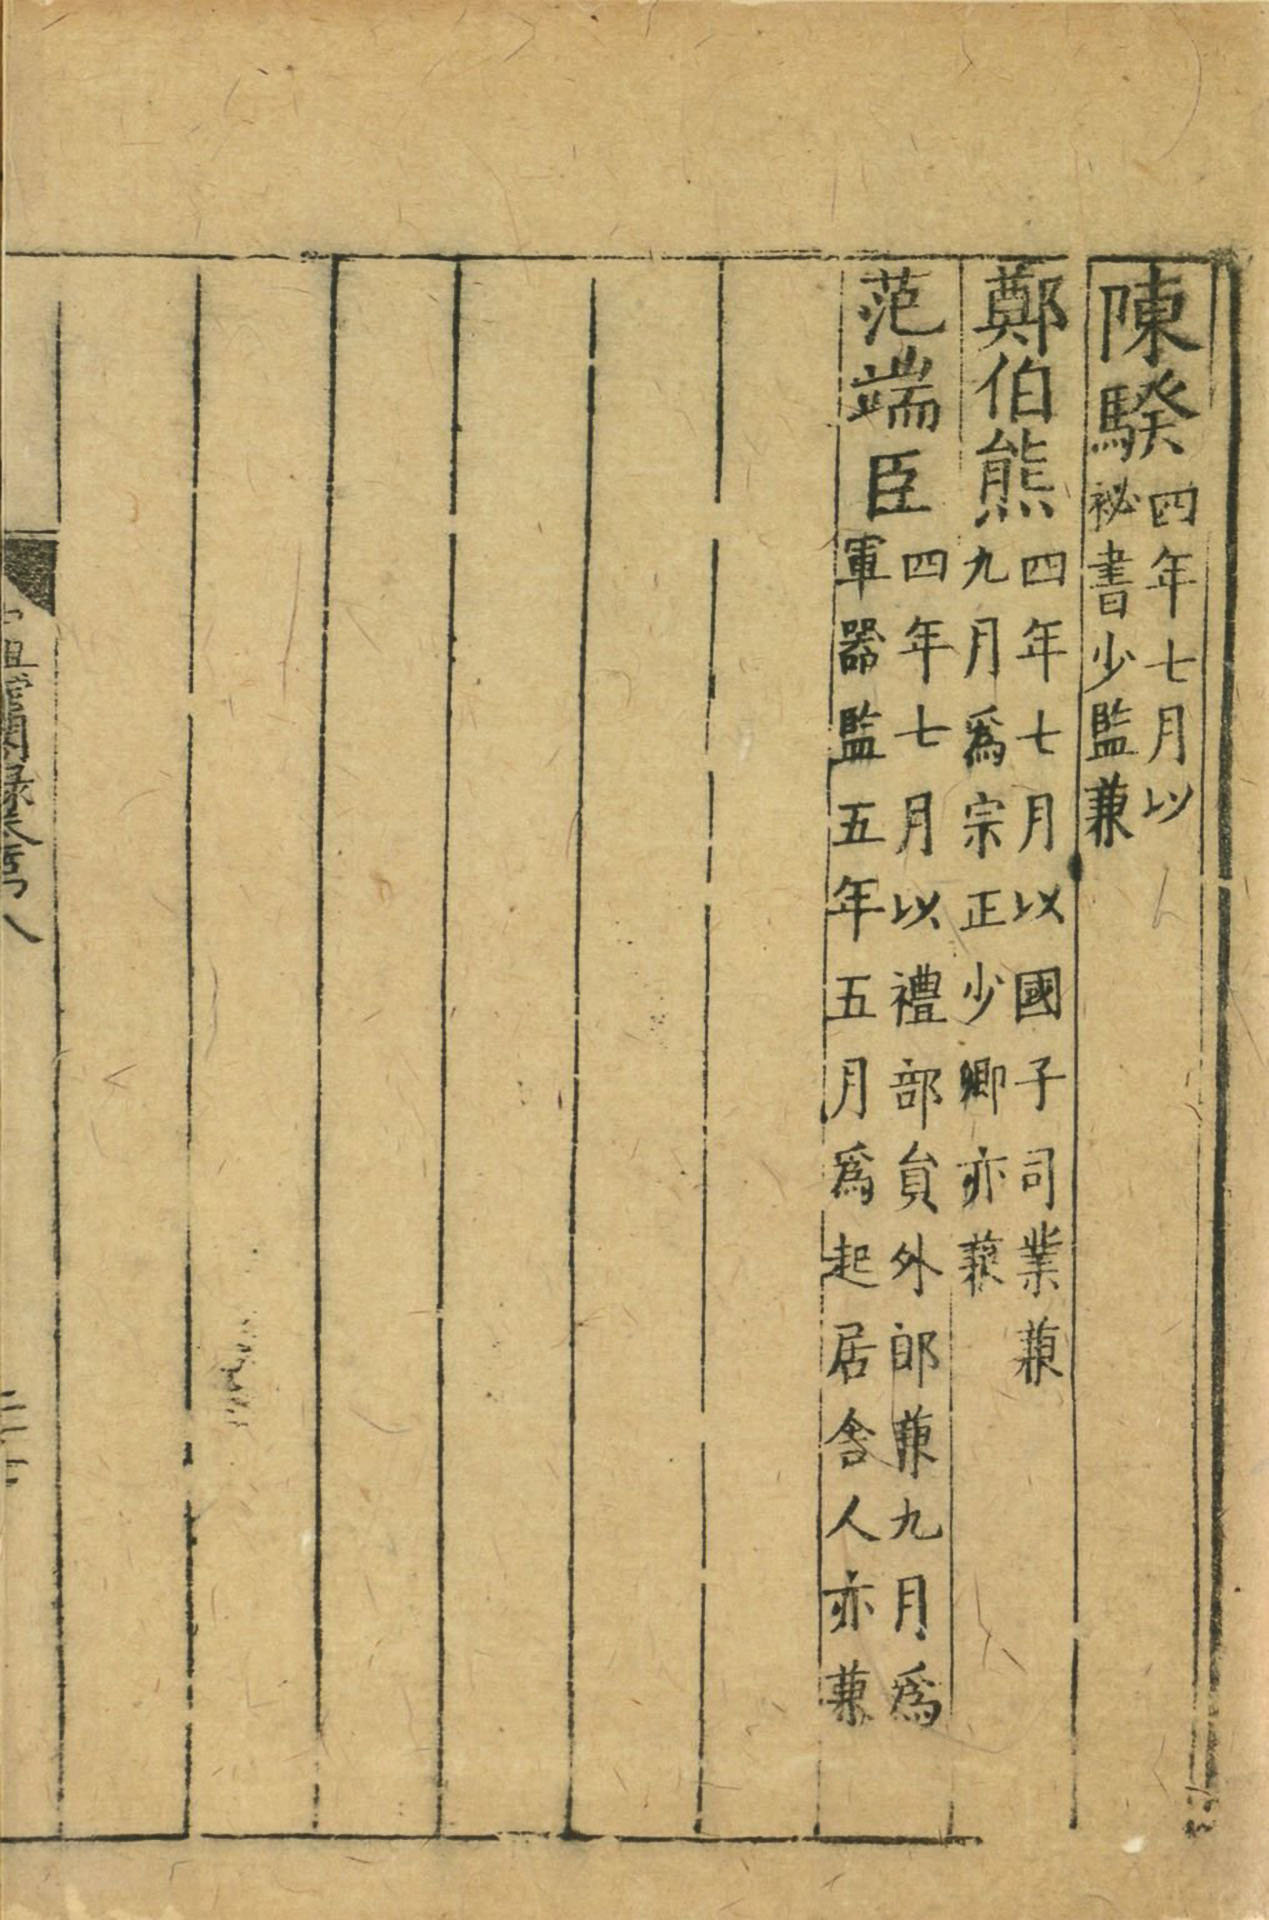 陳騤四年七月以
祕書少監兼
鄭伯熊四年七月以國子司業兼
九月爲宗正少卿亦兼
范端臣四年七月以禮部員外郎兼九月爲
軍器監五年五月爲起居舍人亦兼